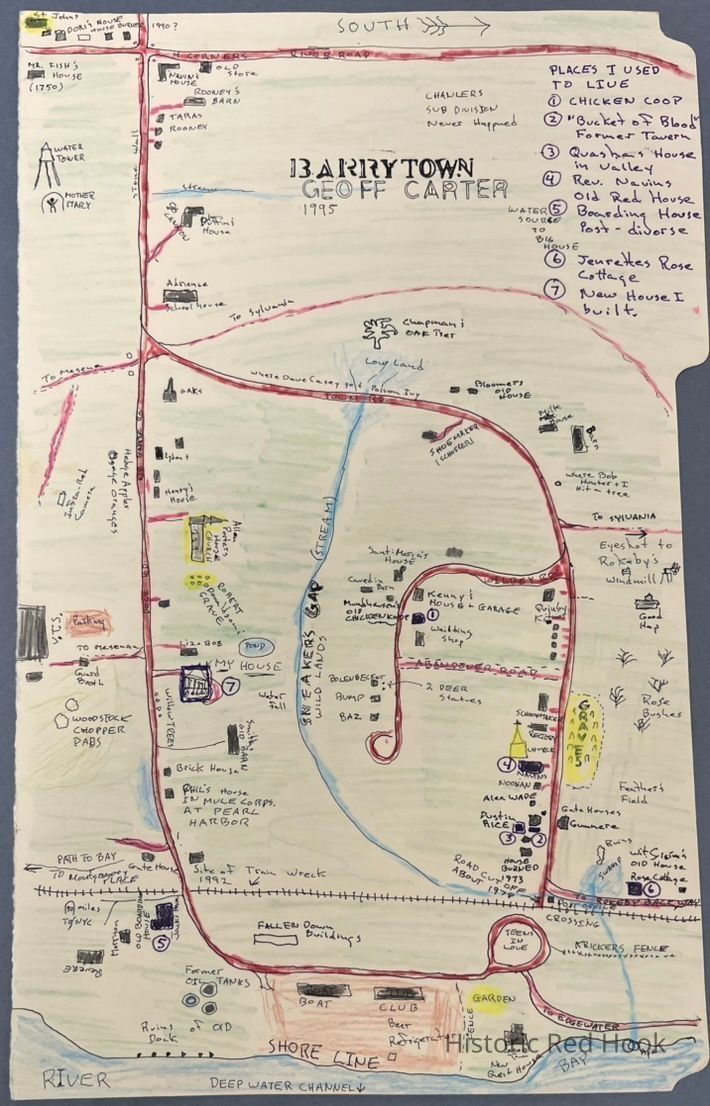 St. Johns
DORI'S HOUSE
HOUSE BURNED 1990?
SOUTH
4 CORNERS
RIVER ROAD
MR. FISH'S
HOUSE
(1750)
NAVINS
HOUSE
OLD
Store
ROONEY'S
BARN
TARAS
ROONEY
CHANLERS
SUB DIVISION
Never Happened
PLACES I USED
TO LIVE
① CHICKEN COOP
② "Bucket of Blood"
Former Tavern
③ Quashas House
in Valley
④ Rev. Navins
Old Red House
⑤ Boarding House
Post-divorse
⑥ Jenrettes Rose
Cottage
⑦ New House I
built.
WATER
TOWER
MOTHER
MARY
Stone Wall
Stream
BARRYTOWN
GEOFF CARTER
1995
WATER
SOURCE
TO
BIG
HOUSE
House
Adrience
School House
To Sylvania
Chapman's
OAK Tree
Low Land
To Masena
where Dave Casey got Poison Ivy
OAKS
Bloomers
OLD
HOUSE
Milk
House
Barn
SHOEMAKER
Where Bob
Hunter + I
Hit a tree
Hedge Apples
Osage Oranges
Infra-Red
Camera
Henry's
House
Allen
Porters
House
CHURCH
ROBERT
Donaldsons
GRAVE
(STREAM)
TO SYLVANIA
Eyeshot to
Rokeby's
Windmill
Good
Hap
House
Caved in
Barn
OLD
CHICKEN KOOP
①
Kenny's
HOUSE + GARAGE
Welding
Shop
ABANDENED ROAD
SNEAKERS GAP
WILD LANDS
U.T.S.
Parking
TO Masena
Guard
Booth
Liza BOB
POND
MY HOUSE
⑦
Water
fall
WOODSTOCK
CHOPPER
PADS
Willow TREES
Smiths
OLD BARN
BUMP
BAZ
2 DEER
Statues
SCHOONMAKER
RECTORY
CHURCH
④
NAVINS
NOONAN
Alex WADE
Dustin
RICE
③
②
HOUSE
BURNED
GRAVES
Rose
Bushes
Feather's
Field
Gate Houses
Gunnere
Brick House
PHIL'S House
IN MULE CORPS.
AT PEARL
HARBOR
PATH TO BAY
TO Montgomery
PLACE
Gate House
Site of Train Wreck
1992
ROAD CUT OFF
ABOUT
Ruins
SWAMP
OLD House
Rose Cottage
⑥
POST OFFICE
TO ROKEBY BACK WAY
CROSSING
miles
TO NYC
OLD BOARDING
HOUSE
⑤
FALLEN Down
Buildings
TEENS
IN
LOVE
KRICKERS FENCE
Former
OIL TANKS
BOAT
CLUB
Beer
Refrigerator
FENCE
GARDEN
TO EDGEWATER
Ruins of OLD
Dock
SHORE LINE
RIVER
DEEP WATER CHANNEL
BAY
Historic Red Hook